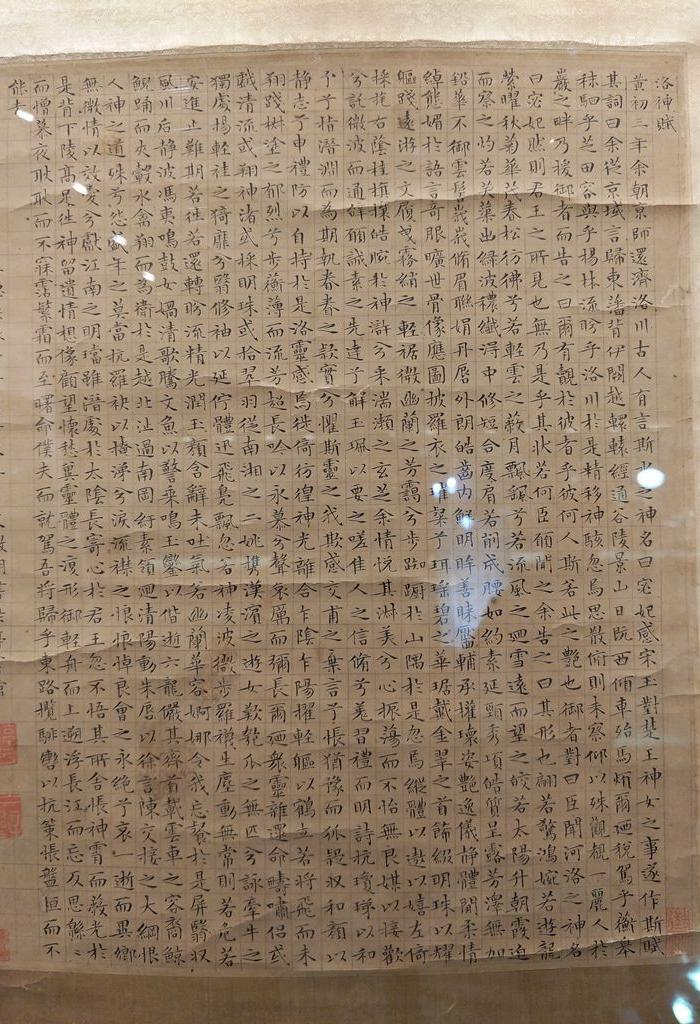 洛神賦
黃初三年余朝京師還濟洛川古人有言斯水之神名曰宓妃感宋玉對楚王神女之事遂作斯賦
其詞曰余從京域言歸東藩背伊闕越轘轅經通谷陵景山日既西傾車殆馬煩爾迺稅駕乎蘅皋
秣駟乎芝田容與乎楊林流眄乎洛川於是精移神駭忽焉思散俯則未察仰以殊觀覩一麗人於
巖之畔乃援御者而告之曰爾有覿於彼者乎彼何人斯若此之艷也御者對曰臣聞河洛之神名
曰宓妃然則君王之所見也無乃是乎其狀若何臣願聞之余告之曰其形也翩若驚鴻婉若遊龍
榮曜秋菊華茂春松彷彿兮若輕雲之蔽月飄颻兮若流風之迴雪遠而望之皎若太陽升朝霞迫
而察之灼若芙蕖出綠波穠纖得中修短合度肩若削成腰如約素延頸秀項皓質呈露芳澤無加
鉛華不御雲髻峩峩脩眉聯娟丹唇外朗皓齒內鮮明眸善睞靨輔承權瓌姿艷逸儀靜體閒柔情
綽態媚於語言奇服曠世骨像應圖披羅衣之璀粲兮珥瑤碧之華琚戴金翠之首飾綴明珠以耀
軀踐遠游之文履曳霧綃之輕裾微幽蘭之芳靄兮步踟躕於山隅於是忽焉縱體以遨以嬉左倚
採旄右蔭桂旗攘皓腕於神滸兮采湍瀨之玄芝余情悅其淑美兮心振蕩而不怡無良媒以接歡
兮託微波而通辭願誠素之先達兮解玉珮以要之嗟佳人之信脩兮羌習禮而明詩抗瓊珶以和
予兮指潛淵而為期執眷眷之款實兮懼斯靈之我欺感交甫之棄言兮悵猶豫而狐疑收和顏以
靜志兮申禮防以自持於是洛靈感焉徙倚彷徨神光離合乍陰乍陽擢輕軀以鶴立若將飛而未
翔踐椒塗之郁烈兮步蘅薄而流芳超長吟以永慕兮聲哀厲而彌長爾迺衆靈雜遝命疇嘯侶或
戲清流或翔神渚或採明珠或拾翠羽從南湘之二妃攜漢濱之遊女歎匏瓜之無匹兮詠牽牛之
獨處揚輕袿之猗靡兮翳修袖以延佇體迅飛鳧飄忽若神凌波微步羅襪生塵動無常則若危若
安進止難期若往若還轉盼流精光潤玉顏含辭未吐氣若幽蘭華容婀娜令我忘餐於是屏翳收
風川后靜波馮夷鳴鼓女媧清歌騰文魚以警乘鳴玉鑾以偕逝六龍儼其齊首載雲車之容裔鯨
鯢踊而夾轂水禽翔而為衛於是越北沚過南岡紆素領迴清陽動朱唇以徐言陳交接之大綱恨
人神之道殊兮怨盛年之莫當抗羅袂以掩涕兮淚流襟之悵悵悼良會之永絕兮哀一逝而異鄉
無微情以效愛兮獻江南之明璫雖潛處於太陰長寄心於君王忽不悟其所舍悵神霄而蔽光於
是背下陵高足往神留遺情想像顧望懷愁冀靈體之復形御輕舟而上遡浮長江而忘反思緜〻
而增慕夜耿耿而不寐霑繁霜而至曙命僕夫而就駕吾將歸乎東路攬騑轡以抗策悵盤桓而不
能去